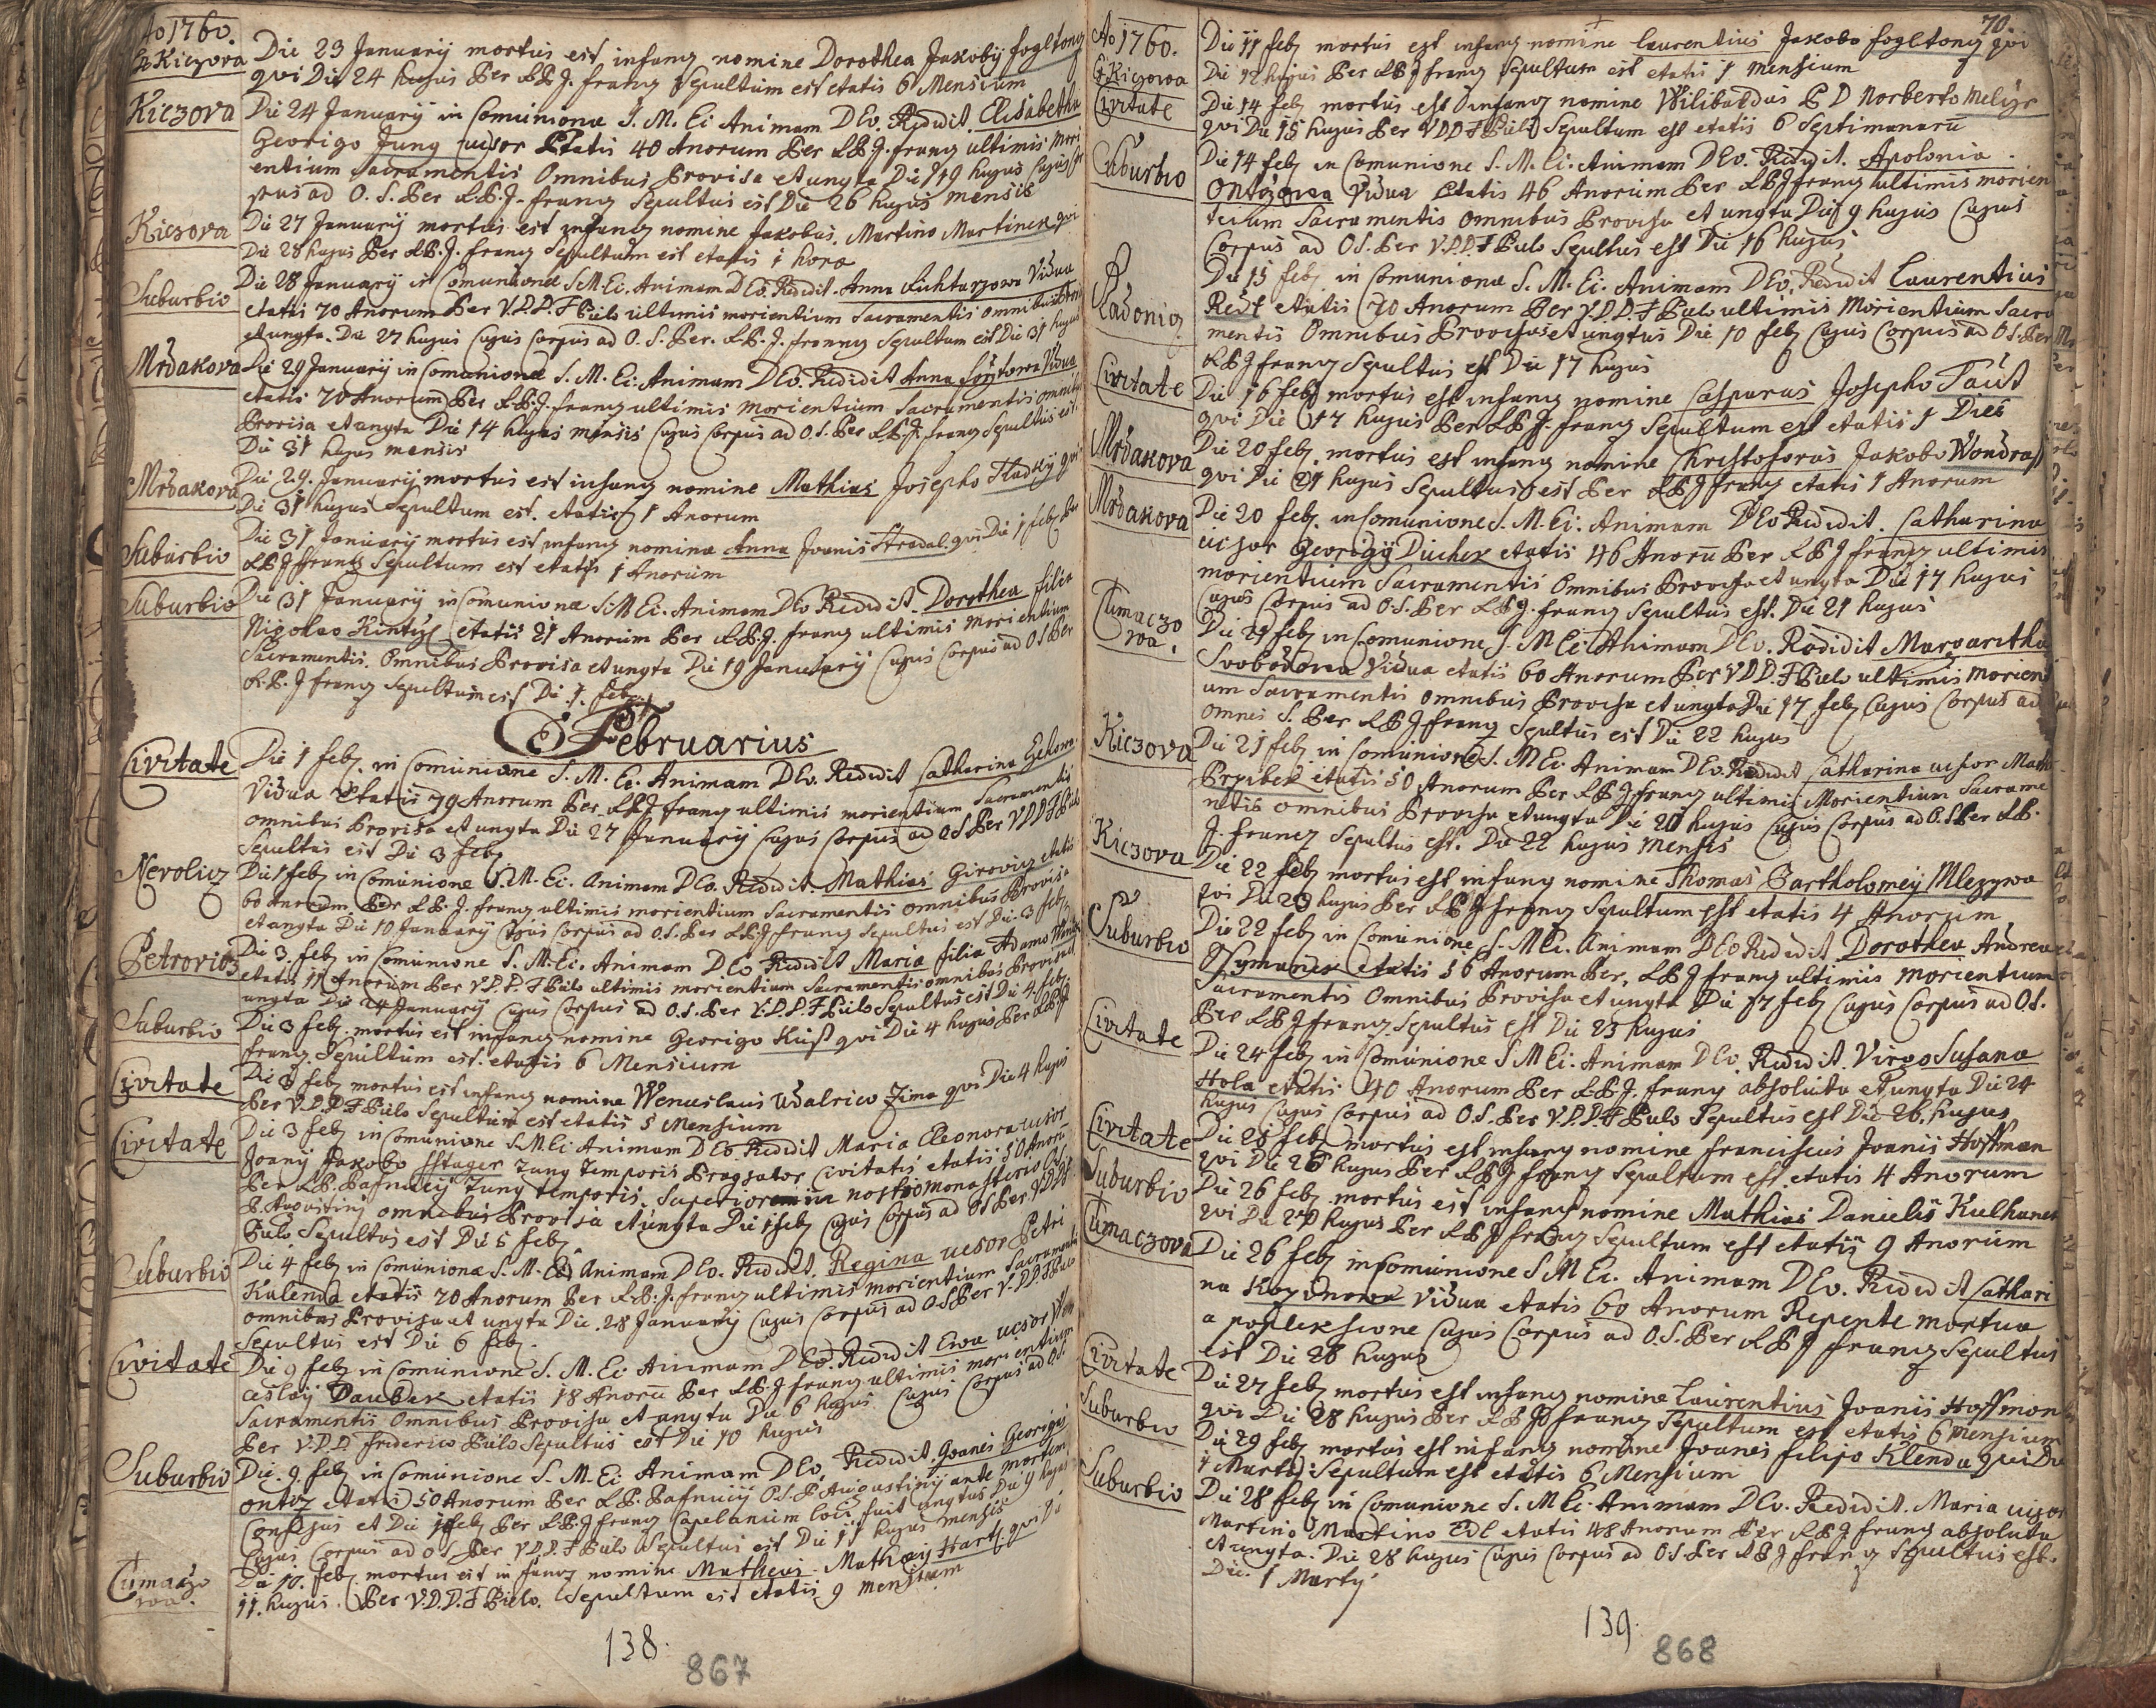 Ao 1760.
Kiczova Die 23 Januarij mortus est infang nomine Dorothea Jakobij fogltong
qvi Die 24 hujus Per A.R.P.J. frang Sepultum est etatis 6 Mensium
Kiczova Die 24 Januarij in Comunione S. M. Ei Animam DEo. Redidit Elisabetha
Georigo Jung uxor Etatis 40 Anorum Per A.R.P.J. frang ultimis Mori
entium Sacramentis Omnibus Provisa et ungta Die 19 hujus Cujus
pus ad O. S. Per A.R.P.J. frang Sepultus est Die 26 hujus mensis
Kiczova Die 27 Januarij mortus est infang nomine Jakobus, Martino Martinek qvi
Die 28 hujus Per A.R.P.J. frang Sepultum est etatis 1 hora
Suburbio Die 28 Januarij in Comunione S M Ei. Animam DEo. Redidit. Anna Vidua
etatis 70 Anorum Per V.P.D. F Pulo ultimis morientium Sacramentis omnibus
et ungta. Die 27 hujus Cujus Corpus ad O. S. Per. A.R.P.J. franng Sepultum est Die 31 hujus
Mrdakova Die 29 Januarij in Comunione S. M. Ei. Animam DEo. Redidit Anna Vidua
etatis 70 Anorum Per A.R.P.J. frang ultimis morientium Sacramentis omnibus
Provisa et ungta Die 14 hujus mensis Cujus Corpus ad O. S. Per A.R.P.J. frang Sepultus est
Die 31 hujus mensis
Mrdakova Die 29. Januarij mortus est infang nomine Mathias Josepho Hladkÿ qvi
Die 31 hujus Sepultum est. etatis 1 Anorum
Suburbio Die 31 Januarij mortus est infang nomine Anna Joanis Stradal. qvi Die 1 feb. Per
A.R.P.J ffrang Sepultum est etatis 1 Anorum
Suburbio Die 31 Januarij in Comunione S. M Ei. Animam DEo Redidit. Dorothea filia
Nigolao Kintzl etatis 21 Anorum Per A.R.P.J. frang ultimis morientium
Sacramentis. Omnibus Provisa et ungta Die 19 Januarij Cujus Corpus ad O S Per
A.R.P.J frang Sepultum est Di 1. feb.
Februarius
Civitate Die 1 feb. in Comunione S. M. Ei. Animam DEo. Redidit Catharina
Vidua Etatis 79 Anorum Per A.R.P.J frang ultimis morientium Sacramentis
omnibus Provisa et ungta Die 27 Januarij Cujus Corpus ad O S Per V D D F Pulo
Sepultus est Die 3 feb.
Nevolicz Die 1 feb. in Comunione S. M. Ei. Animam DEo. Redidit. Mathias Girovicz etatis
60 Anorum Per A.R.P.J. frang ultimis morientium Sacramentis omnibus Provisa
et ungta Die 10 Januarij Cujus Corpus ad O. S. Per A.R.P.J frang Sepultus est Die 3 feb.
Petrovicz Die 3. feb. in Comunione S. M. Ei. Animam DEo Redidit Maria filia Adamo
etatis 11 Anorum Per V. P. D. F Pulo ultimis morientium Sacramentis omnibus Provisa et
ungta Die 24 Januarij Cujus Corpus ad O. S. Per V. D. D. F Pulo Sepultus est Die 4. feb.
Suburbio Die 3 feb. mortus est infang nomine Georigo Kuss qvi Die 4 hujus Per A.R.P.J
frang. Sepultum est. etatis 6 Mensium
Civitate Die 3 feb. mortus est infang nomine Wenceslaus Udalrico Zima qvi Die 4 hujus
Per V. D. D F Pulo Sepultum est etatis 5 Mensium
Civitate Die 3 feb. in Comunione S. M Ei Animam DEo. Redidit Maria Eleonora uxor
Joanij Jakobo Sstager Tung Temporis Civitatis etatis 50 Anoru
Per A.R.P. Pafnucij Tung temporis. Superiorem in nostro monasterio
P. Augustinj omnibus Provisa et ungta Die 1 feb. Cujus Corpus ad O S Per V D D F
Pulo Sepultus est Die 5 feb.
Suburbio Die 4 feb. in Comunione S. M. Ei Animam DEo. Redidit. Regina ucsor Petri
Kalenda etatis 70 Anorum Per A.R.P.J. frang ultimis morientium Sacramentis
omnibus Provisa et ungta Die. 28 Januarij Cujus Corpus ad O. S Per V. D D F Pulo
Sepultus est Die 6 feb.
Civitate Die 9 feb. in Comunione S. M. Ei Animam DEo. Redidit Eva ucsor Wen
ceslaij Daubek etatis 18 Anoru Per A.R.P.J frang ultimis morientium
Sacramentis Omnibus Provisa et ungta Die 6 hujus Cujus Corpus ad O. S.
Per V. D. D. friderico Pulo Sepultus est Die 10 hujus
Suburbio Die. 9. feb. in Comunione S. M. Ei Animam DEo. Redidit. Joanes Georigij
ontrz etatis 50 Anorum Per A.R.P. Pafnucij O. S. P Augustinij ante mortem
Confesus et Die 1 feb. Per A.R.P.J frang Capelanum loci fuit ungtus Die 9 hujus
Cujus Corpus ad O S Per V D D. F Pulo Sepultus est Die 11 hujus mensis
Tumaczowa. Die 10. feb. mortus est infang nomine Matheus Mathaij Hartl. qvi Di
11. hujus. Per V. D. D. F Pulo. Sepultum est etatis 9 mensium
138.
867
70.
Ao 1760.
Kiczowa Die 11 feb. mortus est infang nomine Laurentius Jakobo fogltong qvi
Die 12 hujus Per A.R.P.J frang Sepultum est etatis 1 mensium
Civitate Die 14 feb. mortus est infang nomine Wilibaldus P D Norberto Melizr
qvi Die 15 hujus Per V D D F Pulo Sepultum est etatis 6 Septimanarū
Suburbio Die 14 feb. in Comunione S. M. Ei. Animam DEo. Redidit. Apolonia
Ontrzowa Vidua Etatis 46 Anorum Per A.R.P.J frang ultimis morien
tium Sacramentis omnibus Provisa et ungta Die 9 hujus Cujus
Corpus ad O S. Per V. D. D. F Pulo Sepultus est Die 16 hujus
Radonicz Die 15 feb. in Comunione S. M. Ei. Animam DEo. Redidit Laurentius
Redl etatis 70 Anorum Per V. D. D. F Pulo ultimis Morientium Sacra
mentis Omnibus Provisus et ungtus Die 10 feb. Cujus Corpus ad O S. Per
A.R.P.J frang Sepultus est Die 17 hujus
Civitate Die 16 feb. mortus est infang nomine Casparus Josepho Taut
qvi Die 17 hujus Per A.R.P.J. frang Sepultum est etatis 1 Dies
Mrdakova Die 20 feb. mortus est infang nomine Christoforus Jakobo Wondrass
qvi Die 21 hujus Sepultus est Per A.R.P.J frang etatis 1 Anorum
Mrdakova Die 20 feb. in Comunione S. M. Ei. Animam DEo Redidit. Catharina
ucsor Georigij Duchek etatis 46 Anorū Per A.R.P.J frang ultimis
morientium Sacramentis Omnibus Provisa et ungta Die 17 hujus
Cujus Corpus ad O S. Per A.R.P.J. frang Sepultus est. Die 21 hujus
Tumaczowa. Die 21 feb. in Comunione S. M Ei Animam DEo. Redidit Margaritha
Svobodowa Vidua etatis 60 Anorum Per V D D. F Pulo ultimis morienti
um Sacramentis omnibus Provisa et ungta Die 17 feb. Cujus Corpus ad
omnes S. Per A.R.P.J frang Sepultus est Die 22 hujus
Kiczova Die 21 feb. in Comunione S. M Ei Animam DEo. Redidit Catharina ucsor Math
Przibek etatis 50 Anorum Per A.R.P.J. frang ultimis Morientium Sacrame
ntis omnibus Provisa et ungta Die 20 hujus Cujus Corpus ad O. S Per A.R.P.
J. franng Sepultus est. Die 22 hujus mensis
Kiczova Die 22 feb. mortus est infang nomine Thomas Bartholomeij Mlezywa
qvi Die 23 hujus Per A.R.P.J frang Sepultum est etatis 4 Anorum
Suburbio Die 22 feb. in Comunione S. M Ei. Animam DEo Redidit Dorothea Andrea
Ssymanek etatis 56 Anorum Per, A.R.P.J frang ultimis morientium
Sacramentis Omnibus Provisa et ungta Die 17 feb. Cujus Corpus ad O S.
Per A.R.P.J frang Sepultus est Die 23 hujus
Civitate Die 24 feb. in Comunione S M Ei. Animam DEo. Redidit. Virgo Susana
Hola etatis 40 Anorum Per A.R.P.J. frang absoluta et ungta Die 24
hujus Cujus Corpus ad O. S. Per V. D. D. F Pulo Sepultus est Die 26. hujus
Civitate Die 25 feb. mortus est infang nomine Franciscus Joanis Hoffman
qvi Die 26 hujus Per A.R.P.J frang Sepultum est etatis 4 Anorum
Suburbio Die 26 feb. mortus est infang nomine Mathias Danielis Kulhanek
qvi Die 27 hujus Per A.R.P.J frang Sepultum est etatis 9 Anorum
Tumaczova Die 26 feb. in Comunione S M Ei. Animam DEo. Redidit Cathari
na Kozinowa Vidua etatis 60 Anorum Repente mortua
a popleksione Cujus Corpus ad O. S. Per A.R.P.J frang Sepultus
est Die 28 hujus
Civitate Die 27 feb. mortus est infang nomine Laurentius Joanis Hoffmon
qvi Die 28 hujus Per A.R.P.J frang Sepultum est etatis 6 mensium
Suburbio Die 29 feb. mortus est infang nomine Joanes filipo Klenda qvi Die
1 Martij Sepultum est etatis 6 Mensium
Suburbio Die 28 feb. in Comunione S. M Ei. Animam DEo. Redidit. Maria ucsor
Martino Martino Edl etatis 48 Anorum Per A.R.P.J frang absoluta
et ungta. Die 28 hujus Cujus Corpus ad O S Per A.R.P.J frang Sepultus est.
Die. 1 Martij
139.
868